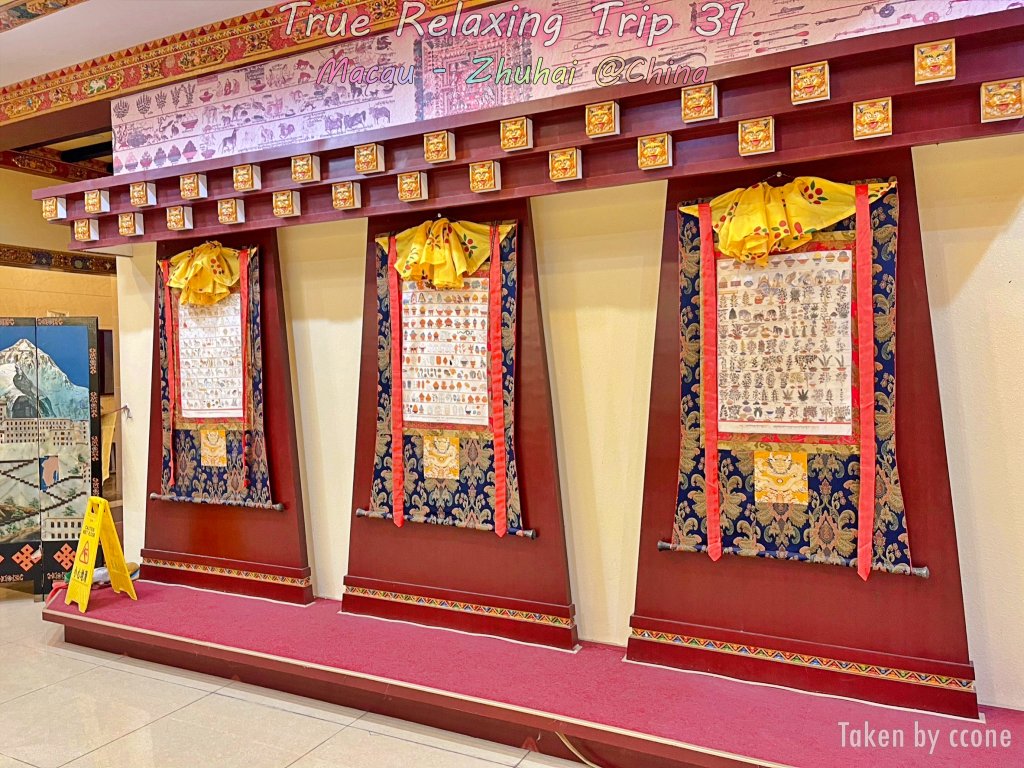 True Relaxing Trip 31
Macau - Zhuhai @China
Taken by ccone